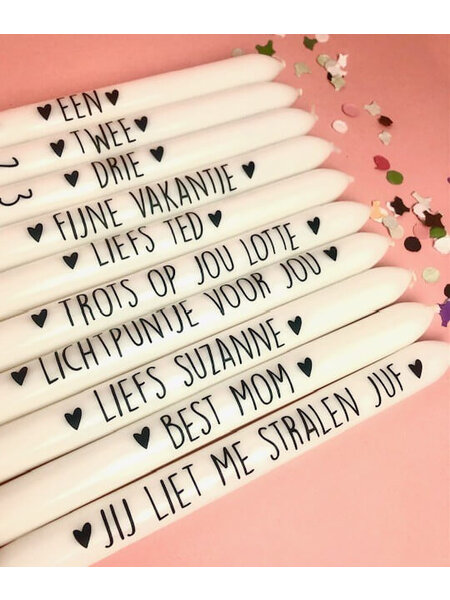 ♥ EEN ♥
♥ TWEE ♥
♥ DRIE ♥
♥ FIJNE VAKANTIE ♥
♥ LIEFS TED ♥
♥ TROTS OP JOU LOTTE ♥
♥ LICHTPUNTJE VOOR JOU ♥
♥ LIEFS SUZANNE ♥
♥ BEST MOM ♥
♥ JIJ LIET ME STRALEN JUF ♥
2
3